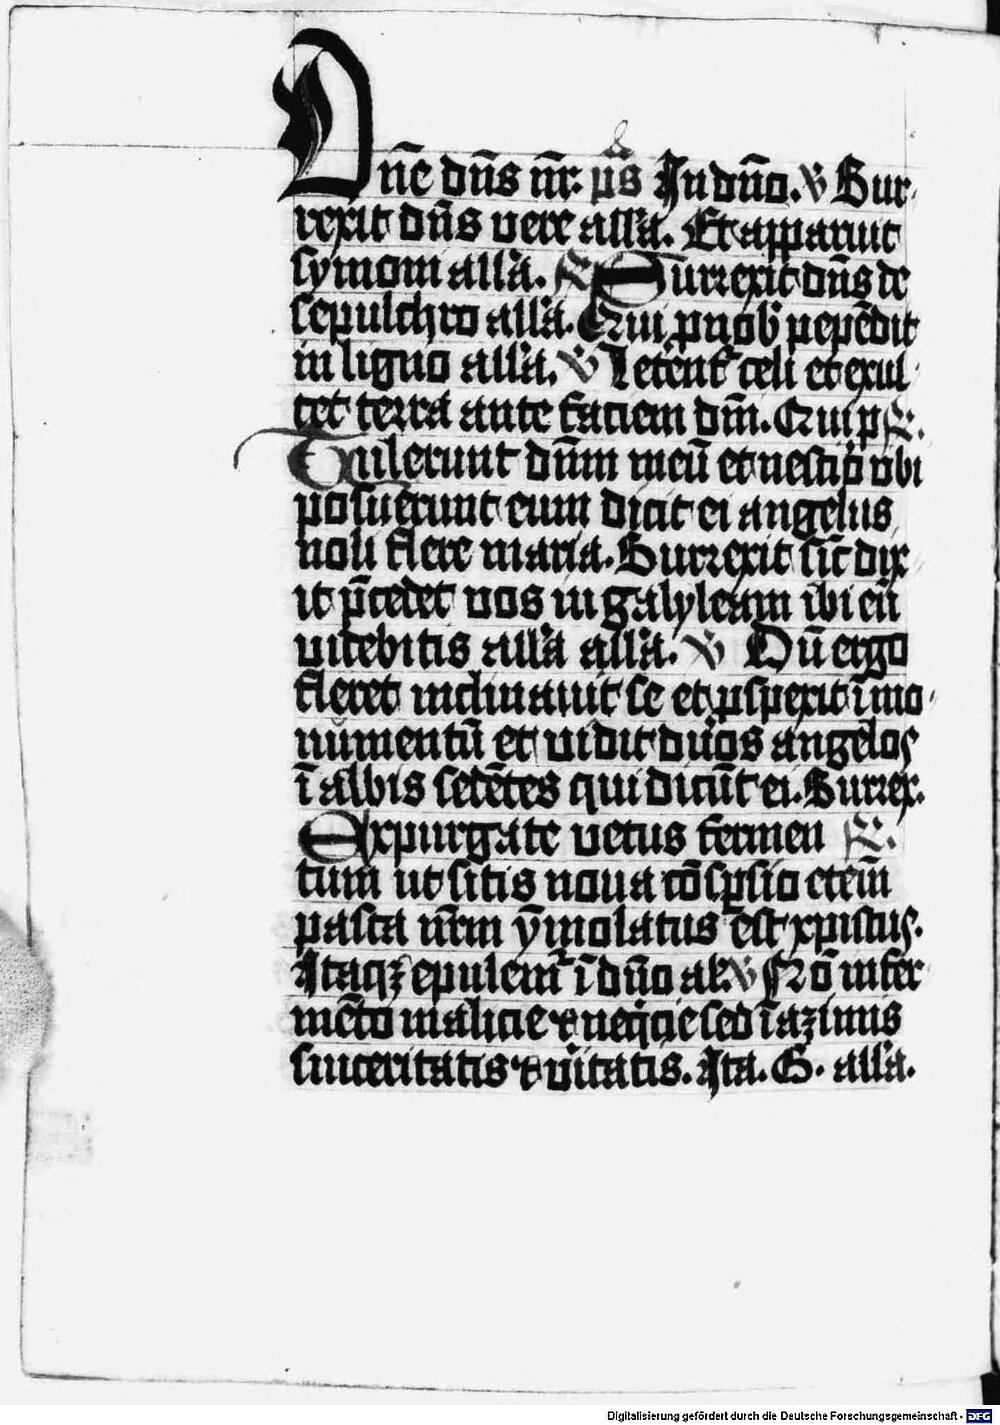 Dn̄e dn̄s nr̄: p̄s In dn̄o. ℣ Sur-
rexit dn̄s vere all'a. Et apparuit
symoni all'a. ℟ Surrexit dn̄s de
sepulchro all'a. Qui p nob̄ pepēdit
in ligno all'a. ℣ Letent᷑ celi et exul-
tet terra ante faciem dm̄. Qui p ℟.
Tulerunt dn̄m meū et nescio vbi
posuerunt eum dicit ei angelus
noli flere maria. Surrexit sic̄ dix-
it p̄cedet vos in galyleam ibi eū
videbitis all'a all'a. ℣ Dū ergo
fleret inclinauit se et p̄spexit ī mo-
numentū et vidit duos angelos
ī albis sedētes qui dicūt ei. Surrex.
Expurgate vetus fermen ℟.
tum ut sitis noua cōsp̄sio etem̄
pasca nr̄m ȳmolatus est xpistus.
Itaqꝫ epulem᷑ ī dn̄o al. ℣ Nō in fer-
mēto malicie & neqͥcie sed ī azimis
sinceritatis & v̄itatis. Ita. E. all'a.
Digitalisierung gefördert durch die Deutsche Forschungsgemeinschaft - DFG